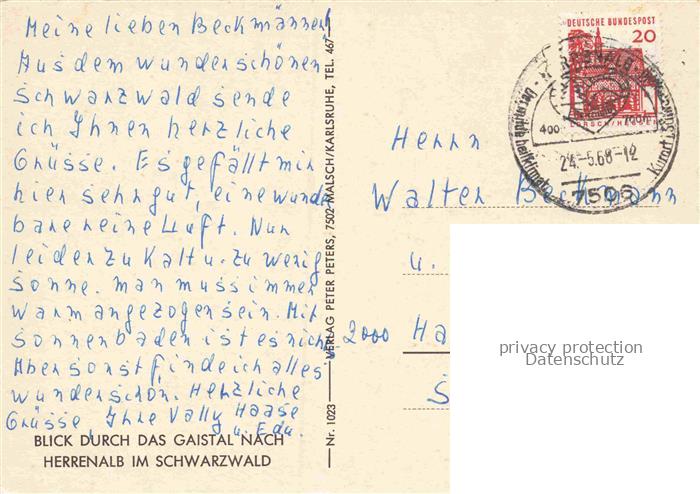 Meine lieben Beckmänner!
Aus dem wunderschönen
Schwarzwald sende
ich Ihnen herzliche
Grüsse. Es gefällt mir
hier sehr gut, eine wunder
bare reine Luft. Nur
leider zu kalt u. zu wenig
Sonne. man muss immer
warm angezogen sein. Mit
sonnenbaden ist es nicht
Aber sonst finde ich alles
wunderschön. Herzliche
Grüsse, Ihre Vally Haase
u. Edu.
BLICK DURCH DAS GAISTAL NACH
HERRENALB IM SCHWARZWALD
Nr. 1023 — VERLAG PETER PETERS, 7502 MALSCH/KARLSRUHE, TEL. 467
DEUTSCHE BUNDESPOST
20
LORSCH/HESSEN
HERRENALB
400 700m
24.-5.68-12
7506
Kurort
Herrn
Walter Beckmann
u.
2000 Ha
S
privacy protection
Datenschutz